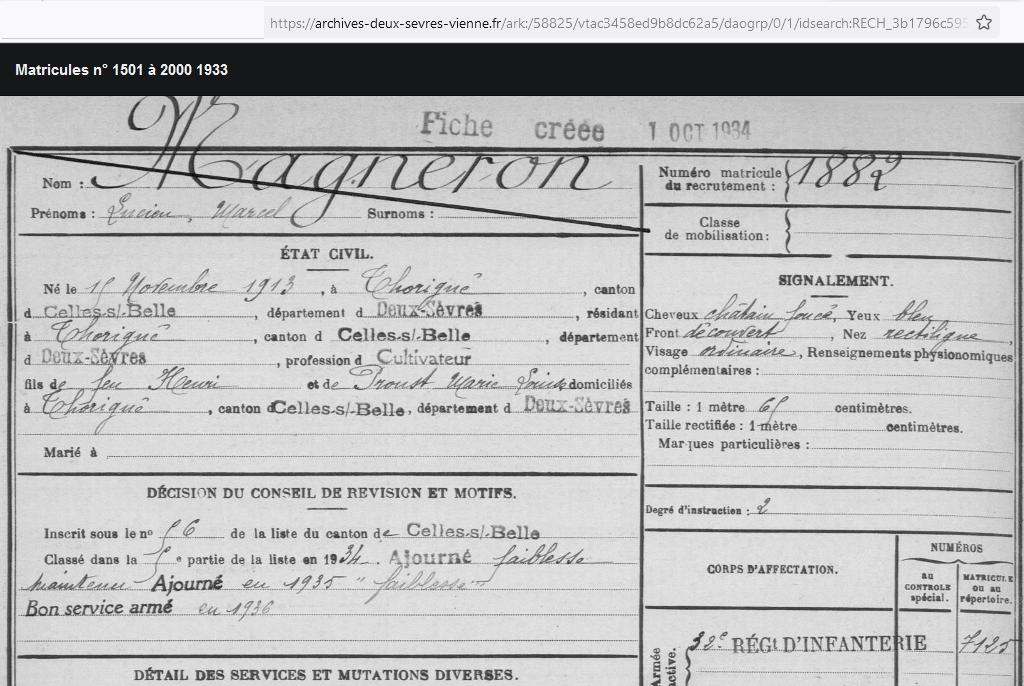 https://archives-deux-sevres-vienne.fr/ark:/58825/vtac3458ed9b8dc62a5/daogrp/0/1/idsearch:RECH_3b1796c595
Matricules n° 1501 à 2000 1933
Fiche créée 1 OCT 1934
Nom : Magneron
Prénoms : Lucien, Marcel Surnoms :
ÉTAT CIVIL.
Né le 15 Novembre 1913, à Thorigné, canton
d Celles-s/-Belle, département d Deux-Sèvres, résidant
à Thorigné, canton d Celles-s/-Belle, département
d Deux-Sèvres, profession d Cultivateur
fils de feu Henri et de Proust Marie Louise domiciliés
à Thorigné, canton d Celles-s/-Belle, département d Deux-Sèvres
Marié à
DÉCISION DU CONSEIL DE REVISION ET MOTIFS.
Inscrit sous le n° 56 de la liste du canton de Celles-s/-Belle
Classé dans la 5e partie de la liste en 1934. Ajourné faiblesse
maintenu Ajourné en 1935 "faiblesse"
Bon service armé en 1936
DÉTAIL DES SERVICES ET MUTATIONS DIVERSES.
Numéro matricule
du recrutement : 1882
Classe
de mobilisation :
SIGNALEMENT.
Cheveux châtain foncé, Yeux bleu
Front découvert, Nez rectiligne
Visage ordinaire, Renseignements physionomiques
complémentaires :
Taille : 1 mètre 65 centimètres.
Taille rectifiée : 1 mètre centimètres.
Marques particulières :
Degré d'instruction : 2
CORPS D'AFFECTATION.
NUMÉROS
AU CONTROLE spécial.
MATRICULE ou au répertoire.
Armée active.
32e RÉGt D'INFANTERIE 7125